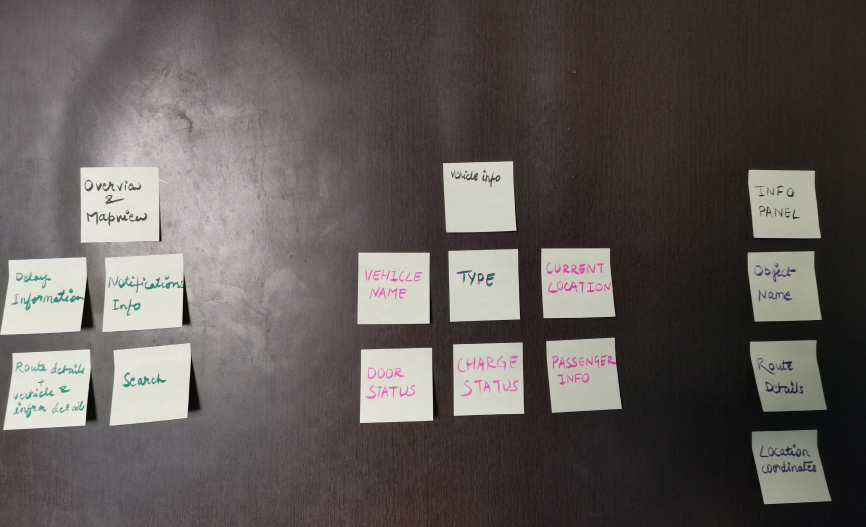 Overview
&
Mapview
Delay
Information
Notifications
Info
Route details
+
vehicle &
infra details
Search
Vehicle info
VEHICLE
NAME
TYPE
CURRENT
LOCATION
DOOR
STATUS
CHARGE
STATUS
PASSENGER
INFO
INFO
PANEL
Object
Name
Route
Details
Location
coordinates